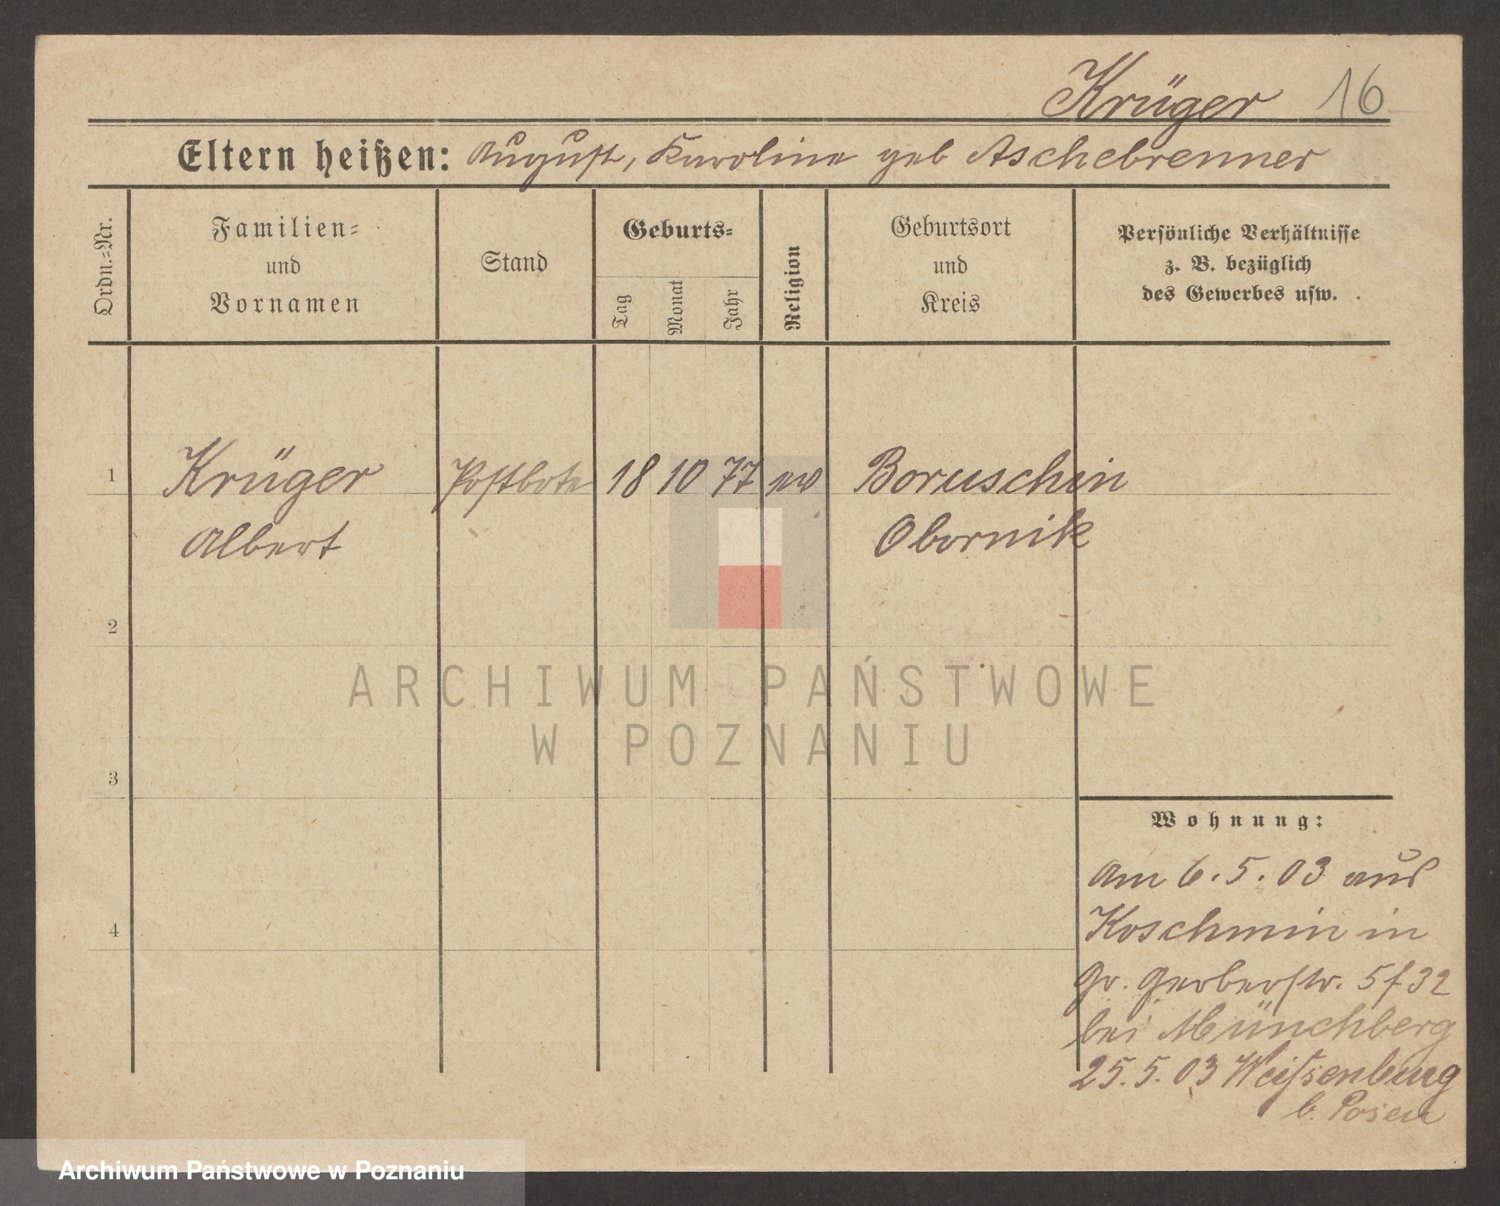 Krüger 16
Eltern heißen: August, Karoline geb Aschebrenner
Ordn.=Nr.
Familien=
und
Vornamen
Stand
Geburts=
Tag
Monat
Jahr
Religion
Geburtsort
und
Kreis
Persönliche Verhältnisse
z. B. bezüglich
des Gewerbes usw.
1 Krüger Postbote 18 10 77 ev Boruschin
Albert Obornik
2
3
4
Wohnung:
am 6. 5. 03 aus
Koschmin in
Gr. Gerberstr. 5 f 32
bei Münchberg
25. 5. 03 Weißenburg
b. Posen
ARCHIWUM PAŃSTWOWE
W POZNANIU
Archiwum Państwowe w Poznaniu